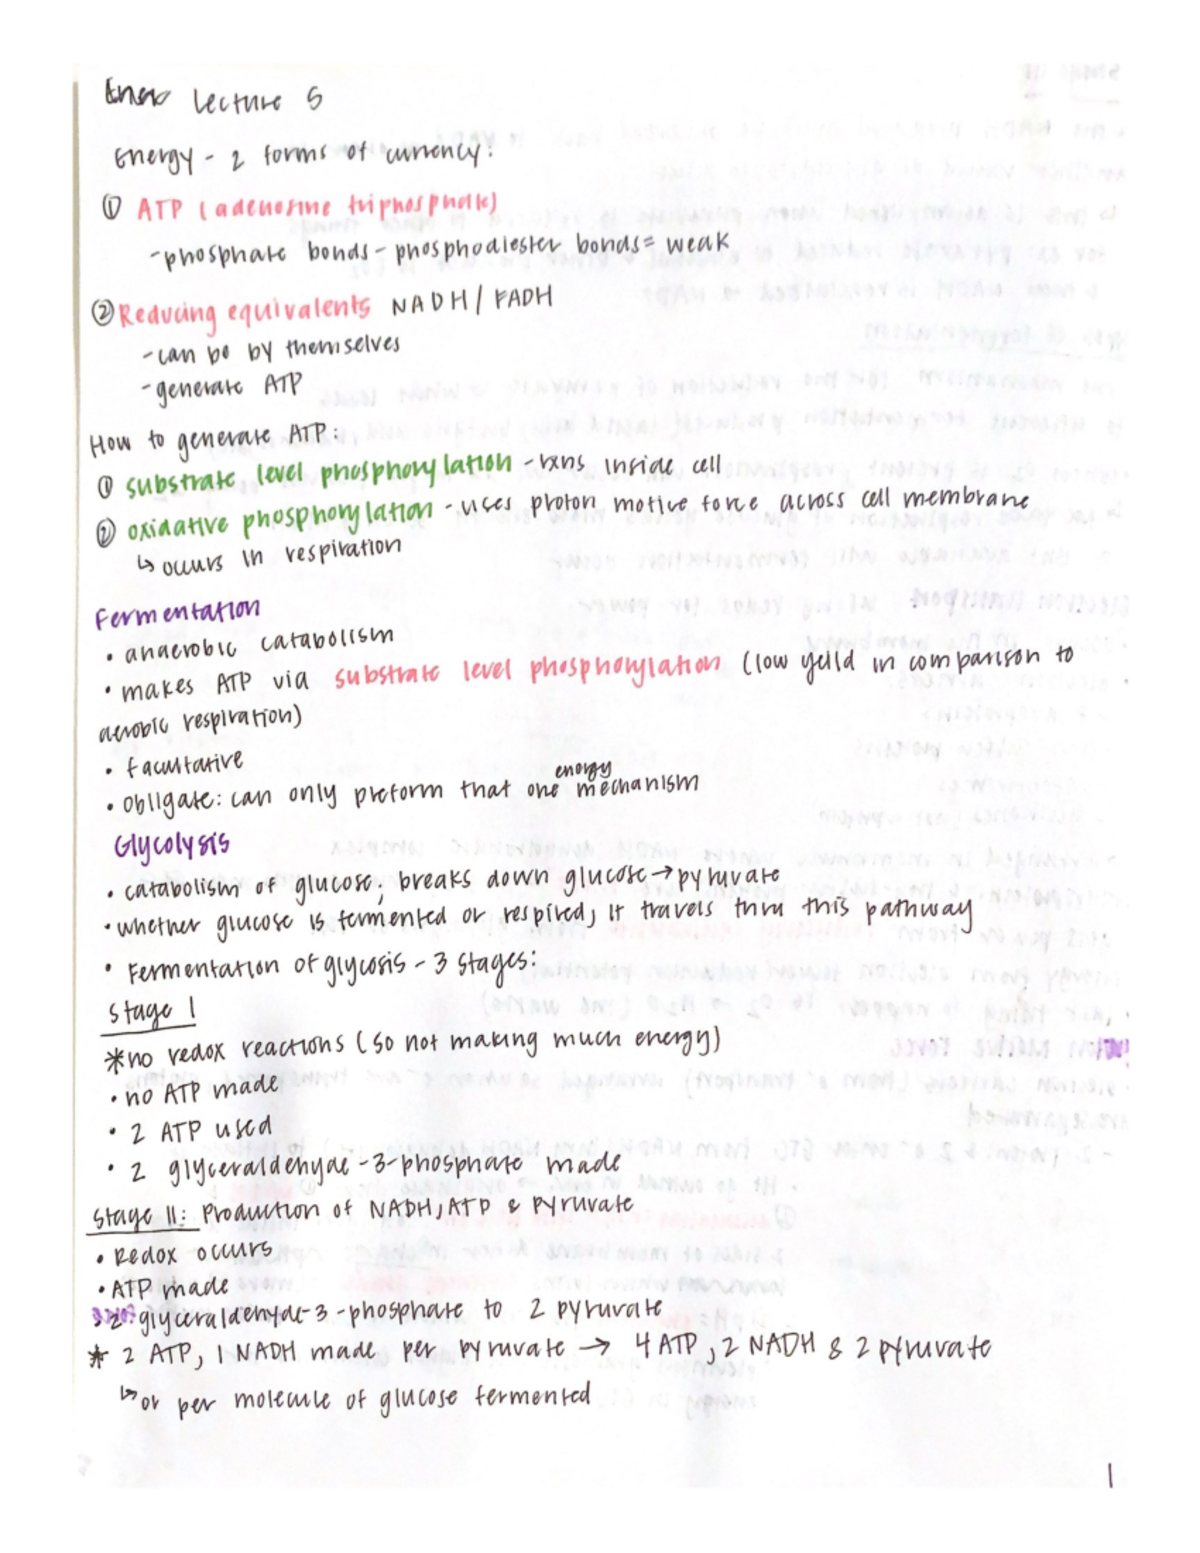 Lecture 5
Energy - 2 forms of currency:
① ATP (adenosine triphosphate)
- phosphate bonds - phosphodiester bonds = weak
② Reducing equivalents NADH / FADH
- can be by themselves
- generate ATP
How to generate ATP:
① substrate level phosphorylation - rxns inside cell
② oxidative phosphorylation - uses proton motive force across cell membrane
↳ occurs in respiration
Fermentation
• anaerobic catabolism
• makes ATP via substrate level phosphorylation (low yeild in comparison to
aerobic respiration)
• facultative
energy
• obligate: can only preform that one mechanism
Glycolysis
• catabolism of glucose; breaks down glucose → pyruvate
• whether glucose is fermented or respired, it travels thru this pathway
• Fermentation of glycosis - 3 stages:
Stage 1
* no redox reactions (so not making much energy)
• no ATP made
• 2 ATP used
• 2 glyceraldehyde-3-phosphate made
Stage II: Production of NADH, ATP & Pyruvate
• Redox occurs
• ATP made
• 2 glyceraldehyde-3-phosphate to 2 pyruvate
* 2 ATP, 1 NADH made per pyruvate → 4 ATP, 2 NADH & 2 pyruvate
↳ or per molecule of glucose fermented
1